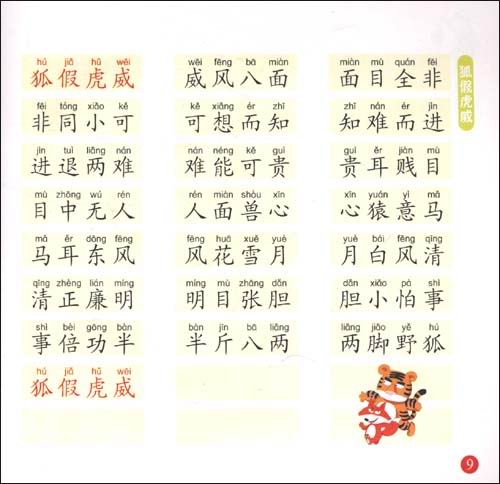 hú jiǎ hǔ wēi wēi fēng bā miàn miàn mù quán fēi
狐假虎威 威风八面 面目全非
fēi tóng xiǎo kě kě xiǎng ér zhī zhī nán ér jìn
非同小可 可想而知 知难而进
jìn tuì liǎng nán nán néng kě guì guì ěr jiàn mù
进退两难 难能可贵 贵耳贱目
mù zhōng wú rén rén miàn shòu xīn xīn yuán yì mǎ
目中无人 人面兽心 心猿意马
mǎ ěr dōng fēng fēng huā xuě yuè yuè bái fēng qīng
马耳东风 风花雪月 月白风清
qīng zhèng lián míng míng mù zhāng dǎn dǎn xiǎo pà shì
清正廉明 明目张胆 胆小怕事
shì bèi gōng bàn bàn jīn bā liǎng liǎng jiǎo yě hú
事倍功半 半斤八两 两脚野狐
hú jiǎ hǔ wēi
狐假虎威
狐假虎威
9